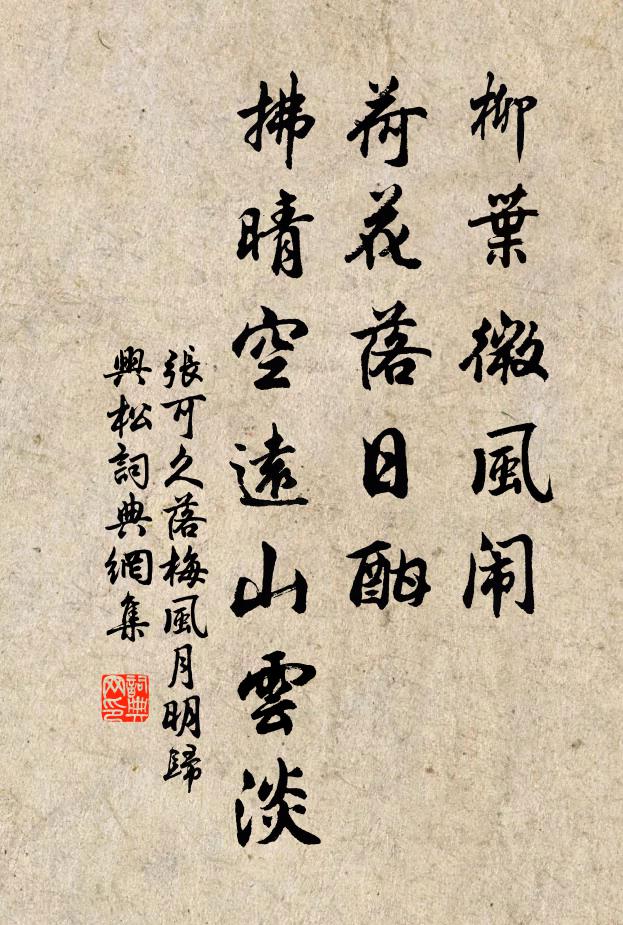 柳葉微風闹
荷花落日酣
拂晴空遠山雲淡
張可久落梅風月明歸
興松詞典網集
詞典網印